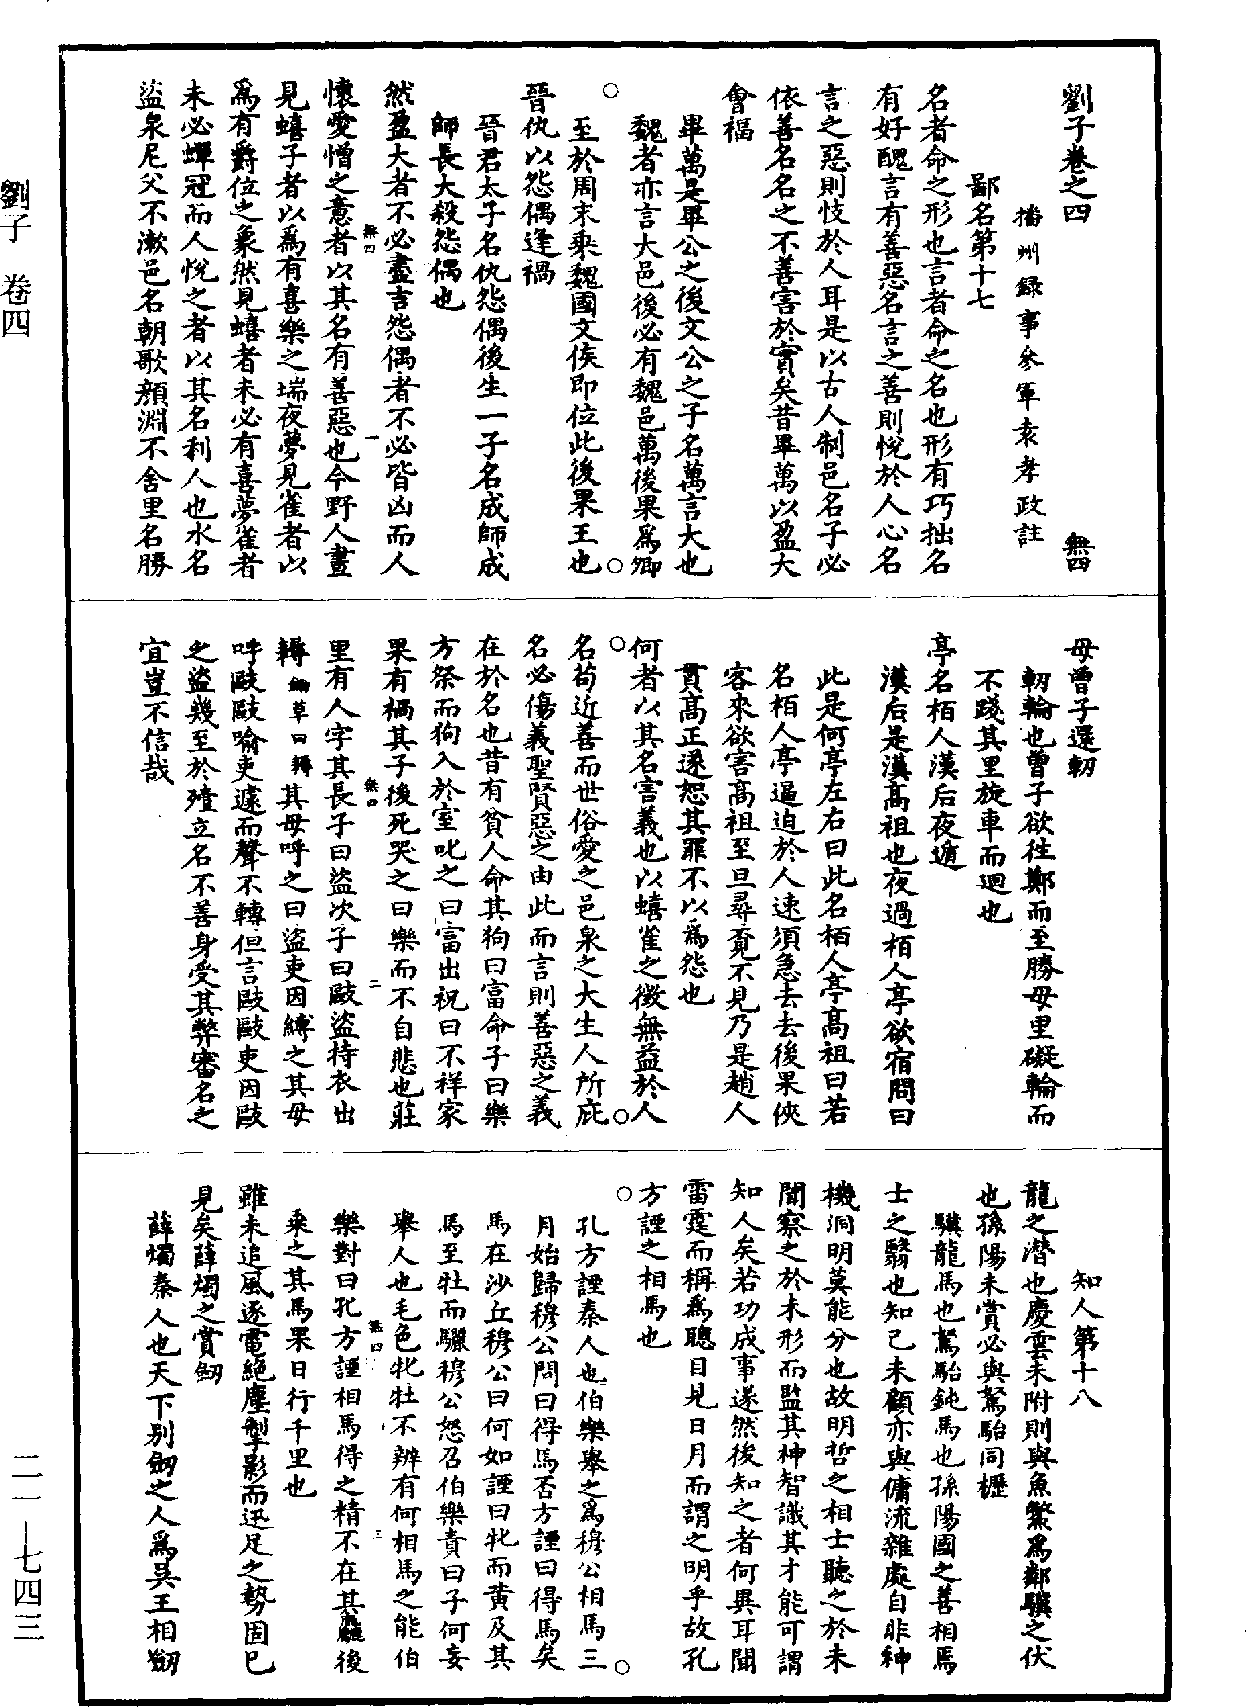 劉子卷之四　無四
播州錄事參軍袁孝政註
鄙名第十七
名者命之形也言者命之名也形有巧拙名
有好醜言有善惡名言之善則悅於人心名
言之惡則忮於人耳是以古人制邑名子必
依善名名之不善害於實矣昔畢萬以盈大
會福
畢萬是畢公之後文公之子名萬言大也
魏者亦言大邑後必有魏邑萬後果爲卿
至於周末乘魏國文侯即位此後果王也
晉仇以怨偶逢禍
晉君太子名仇怨偶後生一子名成師成
師長大殺怨偶也
然盈大者不必盡吉怨偶者不必皆凶而人
懷愛憎之意者以其名有善惡也今野人晝
見蟢子者以爲有喜樂之瑞夜夢見雀者以
爲有爵位之象然見蟢者未必有喜夢雀者
未必蟬冠而人悅之者以其名利人也水名
盜泉尼父不漱邑名朝歌顏淵不舍里名勝
母曾子還軔
軔輪也曾子欲往鄭而至勝母里礙輪而
不踐其里旋車而迴也
亭名栢人漢后夜遁
漢后是漢高祖也夜過栢人亭欲宿問曰
此是何亭左右曰此名栢人亭高祖曰若
名栢人亭逼迫於人速須急去去後果俠
客來欲害高祖至旦尋覓不見乃是趙人
貫高正遂恕其罪不以爲怨也
何者以其名害義也以蟢雀之徵無益於人
名苟近善而世俗愛之邑泉之大生人所庇
名必傷義聖賢惡之由此而言則善惡之義
在於名也昔有貧人命其狗曰富命子曰樂
方祭而狗入於室叱之曰富出祝曰不祥家
果有禍其子後死哭之曰樂而不自悲也莊
里有人字其長子曰盜次子曰毆盜持衣出
耨鋤草曰耨其母呼之曰盜吏因縛之其母
呼毆毆喻吏遽而聲不轉但言毆毆吏因毆
之盜幾至於殪立名不善身受其弊審名之
宜豈不信哉
知人第十八
龍之潛也慶雲未附則與魚鱉爲鄰驥之伏
也孫陽未賞必與駑駘同櫪
驥龍馬也駑駘鈍馬也孫陽國之善相馬
士之翳也知己未顧亦與傭流雜處自非神
機洞明莫能分也故明哲之相士聽之於未
聞察之於未形而監其神智識其才能可謂
知人矣若功成事遂然後知之者何異耳聞
雷霆而稱爲聰目見日月而謂之明乎故孔
方諲之相馬也
孔方諲秦人也伯樂舉之爲穆公相馬三
月始歸穆公問曰得馬否方諲曰得馬矣
馬在沙丘穆公曰何如諲曰牝而黃及其
馬至牡而驪穆公怒召伯樂責曰子何妄
舉人也毛色牝牡不辨有何相馬之能伯
樂對曰孔方諲相馬得之精不在其麤後
乘之其馬果日行千里也
雖未追風逐電絕塵掣影而迅足之勢固巳
見矣薛燭之賞劒
薛燭秦人也天下別劒之人爲吳王相劒
無四　一
無四　二
無四　三
劉子　卷四
二一—七四三